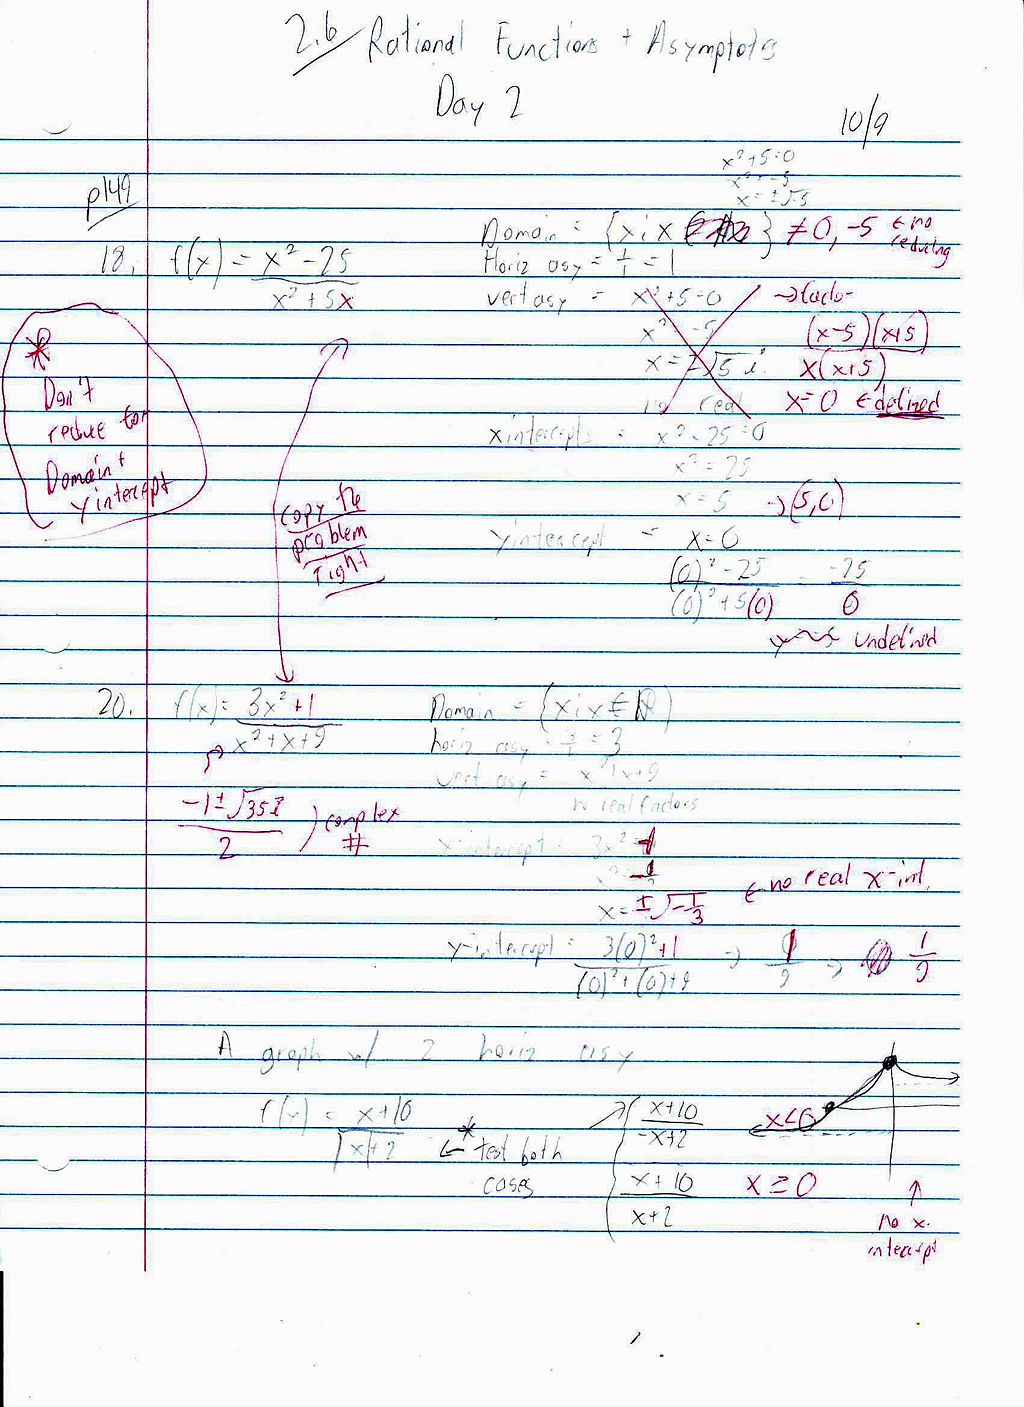 2.6 Rational Functions + Asymptots
Day 2
10/9
p149
x² + 5 = 0
x² = -5
x = ±√-5
18. f(x) = x² - 25 / x² + 5x
Domain = {x ; x } ≠ 0, -5 ← no reducing
Horiz asy = 1/1 = 1
vert asy = x² + 5 = 0
x² = -5
x = ±√5 i
no real
→ factor
(x-5)(x+5)
x(x+5)
x = 0 ← defined
x intercepts = x² - 25 = 0
x² = 25
x = 5 → (5,0)
y intercept = x = 0
(0)² - 25 / (0)² + 5(0) = -25 / 0
undefined
*
Don't
reduce for
Domain +
y intercept
copy the
problem
right
20. f(x) = 3x² + 1 / x² + x + 9
Domain = {x ; x ∈ ℝ}
horiz asy = 3/1 = 3
vert asy = x² + x + 9
no real factors
-1 ± √35 i / 2 ) complex #
x-intercept = 3x² + 1
x = ±√-1/3 ← no real x-int.
y-intercept = 3(0)² + 1 / (0)² + (0) + 9 → 1/9 → 1/9
A graph w/ 2 horiz asy
f(x) = x + 10 / |x| + 2
* ← test both
cases
x + 10 / -x + 2 x < 0
x + 10 / x + 2 x ≥ 0
↑
no x-
intercept